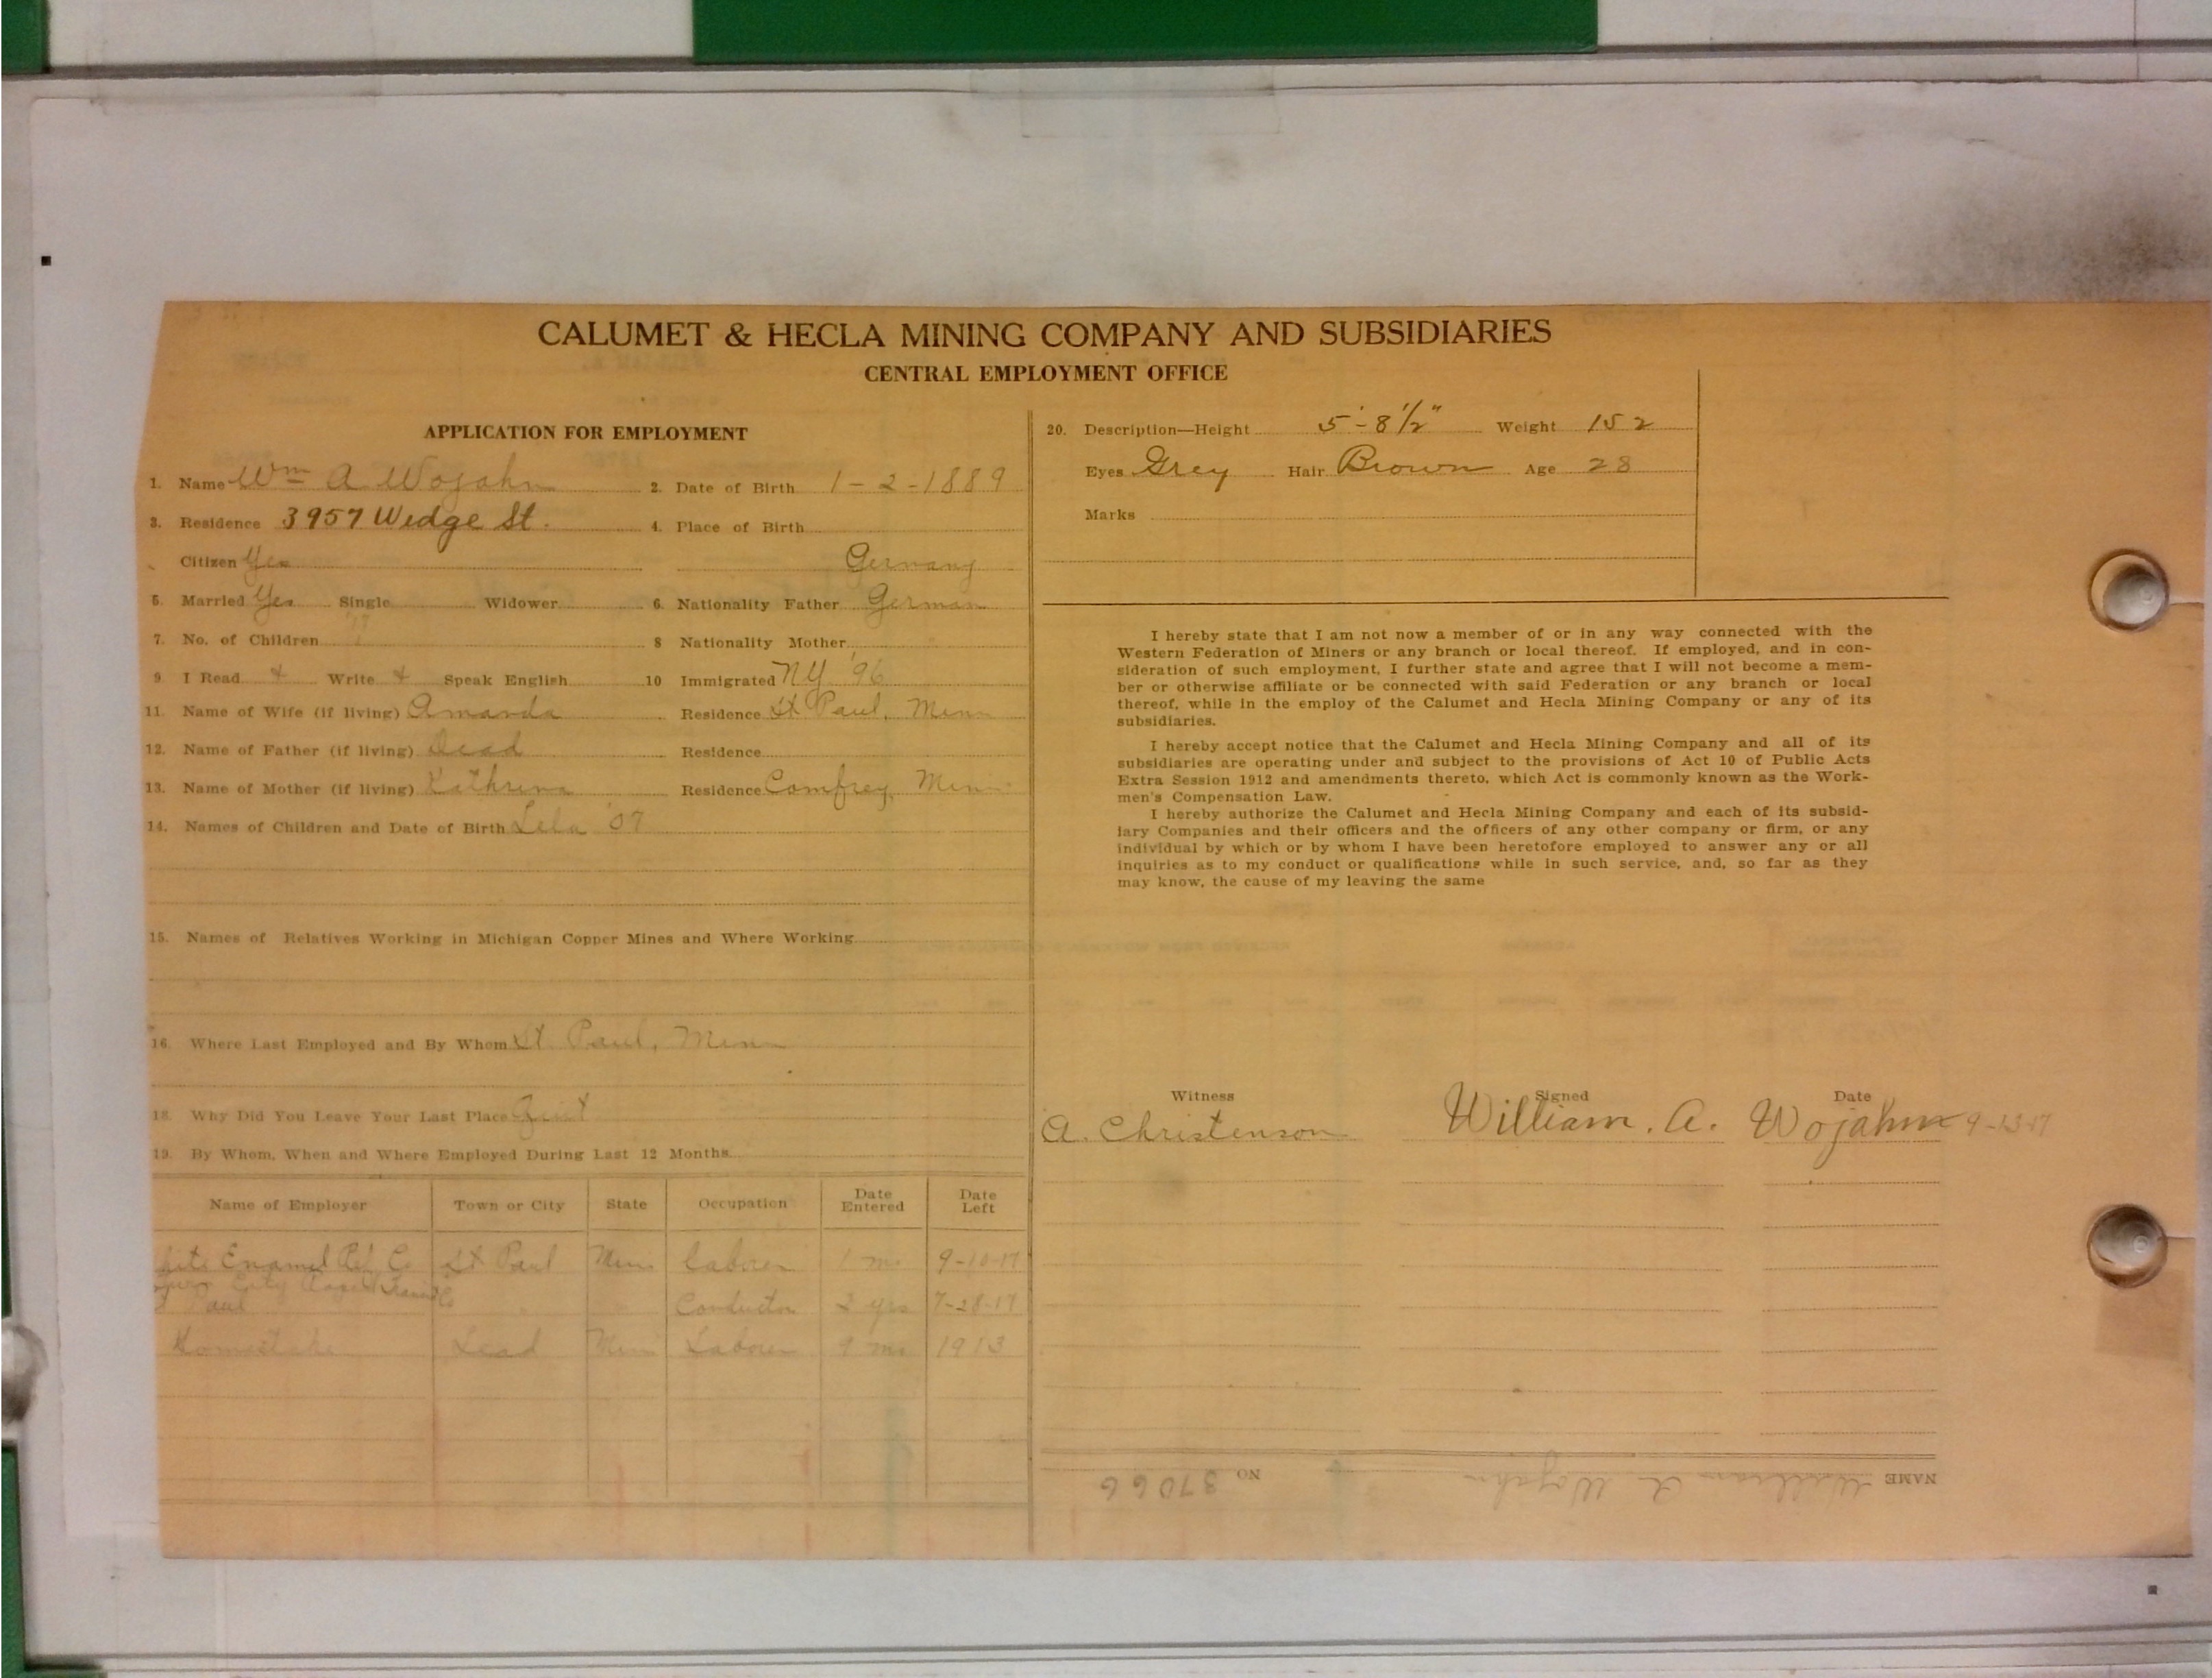 CALUMET & HECLA MINING COMPANY AND SUBSIDIARIES
CENTRAL EMPLOYMENT OFFICE
APPLICATION FOR EMPLOYMENT
1. Name Wm A Wojahn 2. Date of Birth 1-2-1889
3. Residence 3957 Wedge St. 4. Place of Birth
Citizen Yes Germany
5. Married Yes Single Widower 6. Nationality Father German
7. No. of Children 8 Nationality Mother
9. I Read + Write + Speak English 10 Immigrated NY '96
11. Name of Wife (if living) Amanda Residence St Paul, Minn
12. Name of Father (if living) Dead Residence
13. Name of Mother (if living) Kathrina Residence Comfrey, Minn
14. Names of Children and Date of Birth Lela '07
15. Names of Relatives Working in Michigan Copper Mines and Where Working
16. Where Last Employed and By Whom St Paul, Minn
18. Why Did You Leave Your Last Place Quit
19. By Whom, When and Where Employed During Last 12 Months
Name of Employer Town or City State Occupation Date Entered Date Left
Enamel Ref Co St Paul Minn Laborer 1 mo 9-10-17
City Rapid Transit Co
Paul Conductor 2 yrs 7-28-17
Homestake Lead Minn Laborer 9 mo 1913
20. Description—Height 5'-8 1/2" Weight 152
Eyes Grey Hair Brown Age 28
Marks
I hereby state that I am not now a member of or in any way connected with the
Western Federation of Miners or any branch or local thereof. If employed, and in con-
sideration of such employment, I further state and agree that I will not become a mem-
ber or otherwise affiliate or be connected with said Federation or any branch or local
thereof, while in the employ of the Calumet and Hecla Mining Company or any of its
subsidiaries.
I hereby accept notice that the Calumet and Hecla Mining Company and all of its
subsidiaries are operating under and subject to the provisions of Act 10 of Public Acts
Extra Session 1912 and amendments thereto, which Act is commonly known as the Work-
men's Compensation Law.
I hereby authorize the Calumet and Hecla Mining Company and each of its subsid-
iary Companies and their officers and the officers of any other company or firm, or any
individual by which or by whom I have been heretofore employed to answer any or all
inquiries as to my conduct or qualifications while in such service, and, so far as they
may know, the cause of my leaving the same
Witness Signed Date
A. Christenson William. A. Wojahn 9-13-17
NAME William A Wojahn NO 37066